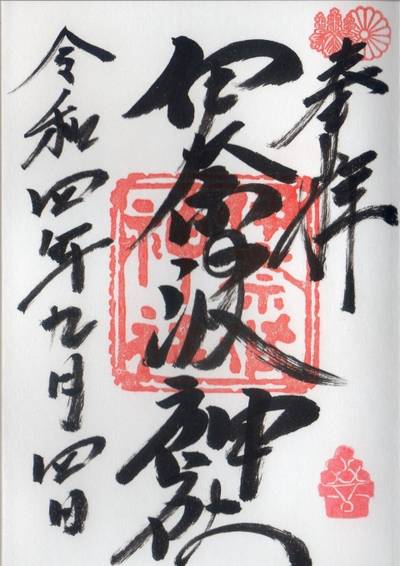 奉拝
伊奈波神社
令和四年九月四日